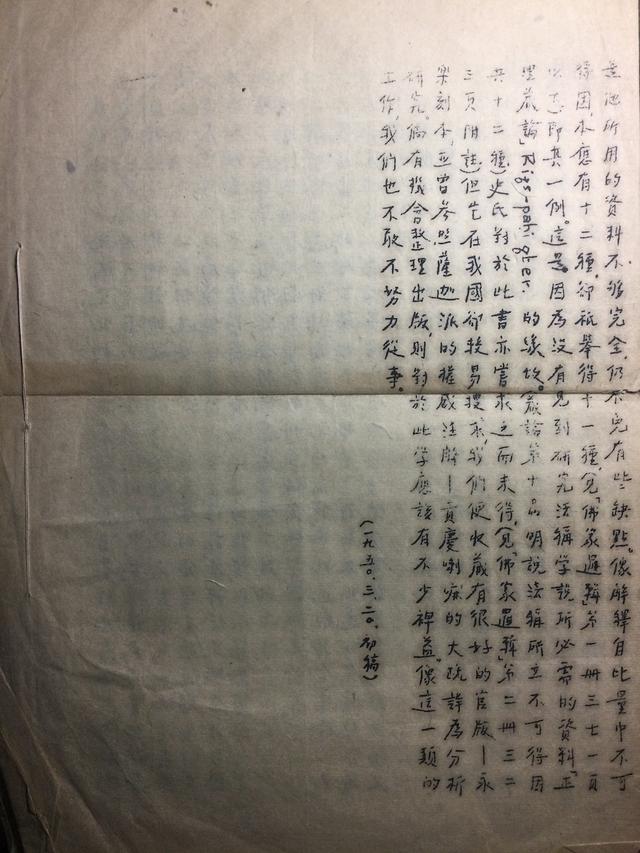 是他所用的資料不够完全,仍不免有些缺點。像解釋自比量中不可
得因,本應有十二種,卻祇舉得十一種,(見「佛家邏輯」第一册三七一頁
以下)即其一例。這是因爲没有見到研究法稱學說所必需的資料「正
理藏論」Rigs-paḥi gter. 的緣故。(藏論第十品明說法稱所立不可得因
共十二種)史氏對於此書亦嘗求之而未得,(見「佛家邏輯」第二册三二
三頁附註)但它在我國卻較易搜求,我們便收藏有很好的官版—永
樂刻本,並曾參照薩迦派的權威注解—貢慶喇痲的大疏詳爲分析
研究。倘有機會整理出版,則對於此學應該有不少裨益。像這一類的
工作,我們也不敢不努力從事。
(一九五〇.三.二〇.初稿)